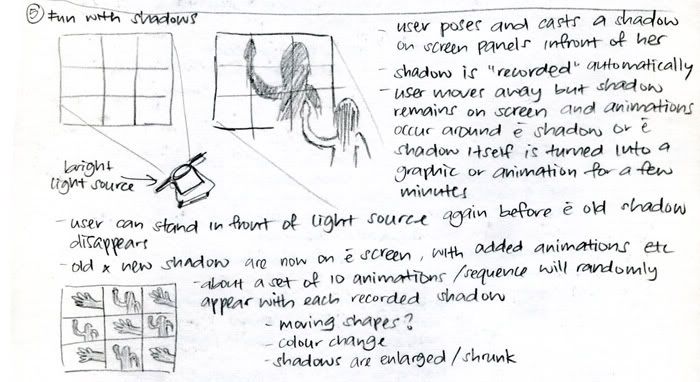 ⑤ Fun with shadows
- user poses and casts a shadow
on screen panels infront of her
- shadow is "recorded" automatically
- user moves away but shadow
remains on screen and animations
occur around ē shadow or ē
shadow itself is turned into a
graphic or animation for a few
minutes
bright
light source
- user can stand in front of light source again before ē old shadow
disappears
- old x new shadow are now on ē screen, with added animations etc
- about a set of 10 animations / sequence will randomly
appear with each recorded shadow
- moving shapes?
- colour change
- shadows are enlarged / shrunk